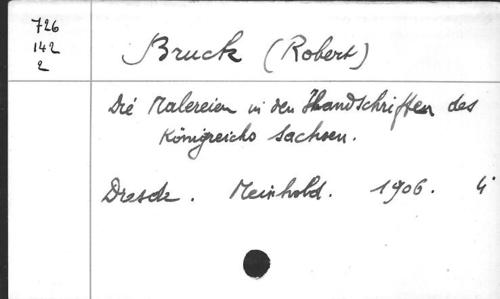 726
142
2
Bruck (Robert)
Die Malereien in den Handschriften des
Königreichs Sachsen.
Dresde. Meinhold. 1906. 4°